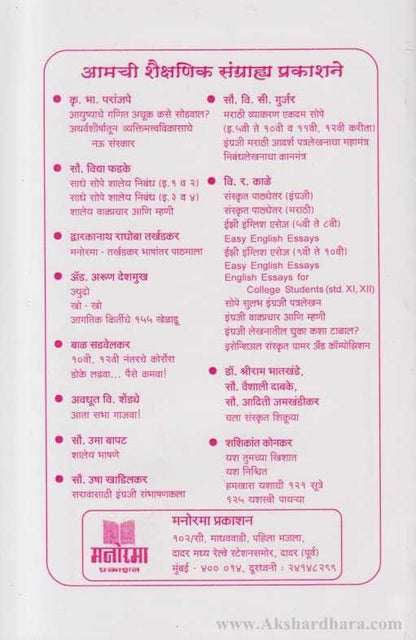 आमची शैक्षणिक संग्राह्य प्रकाशने
कृ. भा. परांजपे
आयुष्याचे गणित अचूक कसे सोडवाल?
अथर्वशीर्षातून व्यक्तिमत्त्वविकासाचे
नऊ संस्कार
सौ. विद्या फडके
साधे सोपे शालेय निबंध (इ.१ व २)
साधे सोपे शालेय निबंध (इ.३ व ४)
शालेय वाक्प्रचार आणि म्हणी
द्वारकानाथ राघोबा तर्खडकर
मनोरमा - तर्खडकर भाषांतर पाठमाला
ॲड. अरूण देशमुख
ज्युदो
खो - खो
जागतिक किर्तिचे १५५ खेळाडू
बाळ सडवेलकर
१०वी, १२वी नंतरचे कोर्सेस
डोके लढवा... पैसे कमवा!
अवधूत वि. शेंड्ये
आता सभा गाजवा!
सौ. उमा बापट
शालेय भाषणे
सौ. उषा खाडिलकर
सरावासाठी इंग्रजी संभाषणकला
सौ. वि. सी. गुर्जर
मराठी व्याकरण एकदम सोपे
(इ.५वी ते १०वी व ११वी, १२वी करीता)
इंग्रजी मराठी आदर्श पत्रलेखनाचा महामंत्र
निबंधलेखनाचा कानमंत्र
वि. र. काळे
संस्कृत पाठ्येतर (इंग्रजी)
संस्कृत पाठ्येतर (मराठी)
ईझी इंग्लिश एसेज (५वी ते ८वी)
Easy English Essays
ईझी इंग्लिश एसेज (९वी ते १०वी)
Easy English Essays
English Essays for
College Students (std. XI, XII)
सोपे सुलभ इंग्रजी पत्रलेखन
इंग्रजी वाक्प्रचार आणि म्हणी
इंग्रजी लेखनातील चुका कशा टाळाल?
इसेन्शिअल संस्कृत ग्रामर अँड कॉम्पोझिशन
डॉ. श्रीराम भातखंडे,
सौ. वैशाली दाबके,
सौ. आदिती जमखंडीकर
चला संस्कृत शिकूया
शशिकांत कोनकर
यश तुमच्या खिशात
यश निश्चित
हमखास यशाची १२१ सूत्रे
१२५ यशस्वी पायऱ्या
मनोरमा
प्रकाशन
मनोरमा प्रकाशन
१०२/सी, माधववाडी, पहिला मजला,
दादर मध्य रेल्वे स्टेशनसमोर, दादर (पूर्व)
मुंबई - ४०० ०१४, दूरध्वनी : २४१४८२९९
www.Akshardhara.com